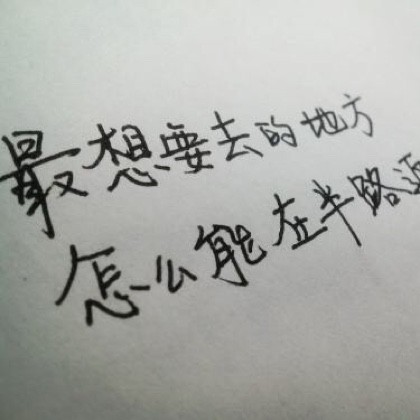 最想要去的地方
怎么能在半路